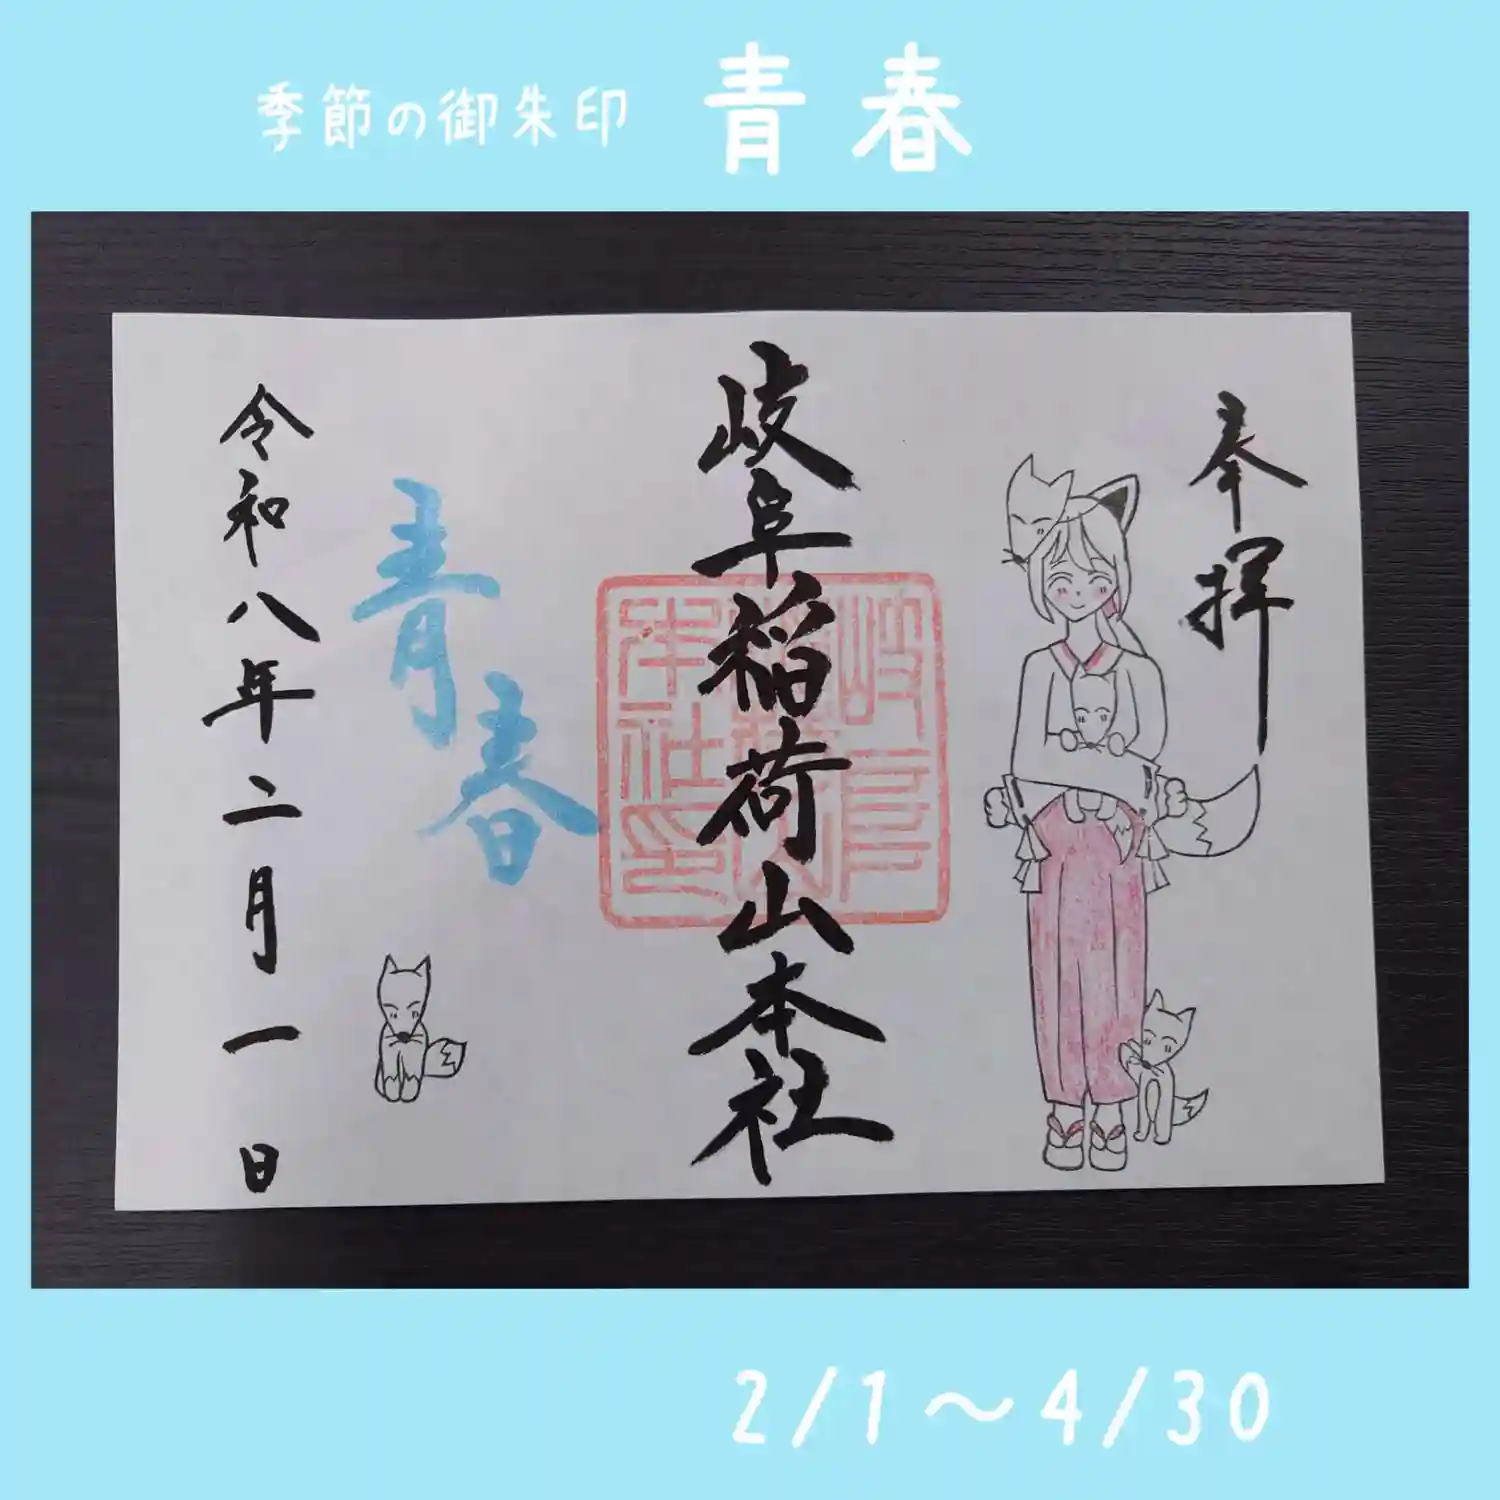 季節の御朱印 青春
奉拝
岐阜稲荷山本社
岐阜稲荷山本社印
青春
令和八年二月一日
2/1〜4/30